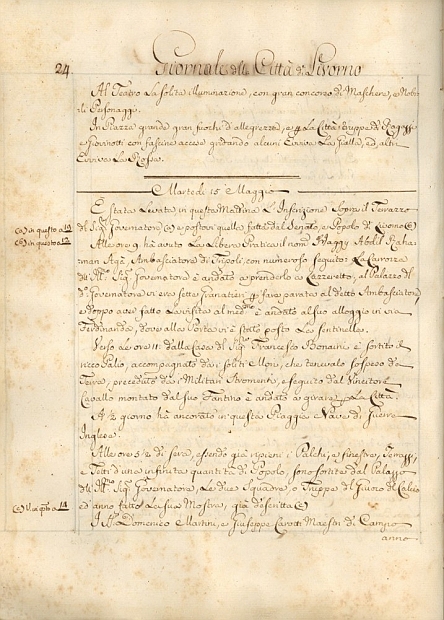 24. Giornale della Città di Livorno
Al Teatro la solita illuminazione, con gran concorso di Maschere, e Nobi-
li Personaggi.
In Piazza grande gran fuochi d'allegrezza, e p. la Città truppe di Ragazzi
e Giovinotti con fascine accese gridando alcuni Evviva la Gialla, ed altri
Evviva la Rossa.
Martedì 15. Maggio
È stata levata in questa Mattina l'Inscrizione sopra il Terrazzo
(a) in questo a 13
del Sig. Governatore (a) e postovi quella fatta dal Senato, e Popolo di Livorno (b)
(b) in questo a 12
Alle ore 9. ha avuto la Libera Pratica il nom. Haggy Abdil Raha-
man Agà Ambasciatore di Tripoli con numeroso seguito: La Carrozza
dell' Ill. Sig. Governatore è andato a prenderlo a Lazzeretto, al Palazzo del
d. Governatore vi era sette Granatieri p. fare parata al detto Ambasciatore
e doppo aver fatto la visita al med. è andato al suo alloggio in via
Ferdinanda, dove alla Porta vi è stato posto la sentinella.
Verso le ore 11. dalla Casa del Sig. Francesco Bonaini è sortito il
ricco Palio, accompagnato da i soliti Alloni, che tenevalo sospeso da
Terra, preceduto da i Militari Strumenti, e seguito dal Vincitore
Cavallo montato dal suo Fantino è andato a girare p. la Città.
A ½ giorno ha ancorato in questa Piaggia e Nave di Guerra
Inglese.
Alle ore 5 ½ di sera, essendo già ripieni i Palchi, e finestre, Terrazzi,
e Tetti d'una infinita quantità di Popolo, sono sortite dal Palazzo
dell' Ill. Sig. Governatore, le due Squadre, o Truppe del Giuoco di Calcio
ed anno fatto la sua Mostra, già descritta (c)
(c) V. a questo a 14
I Domenico Martini, e Giuseppe Carotti Maestri di Campo
anno